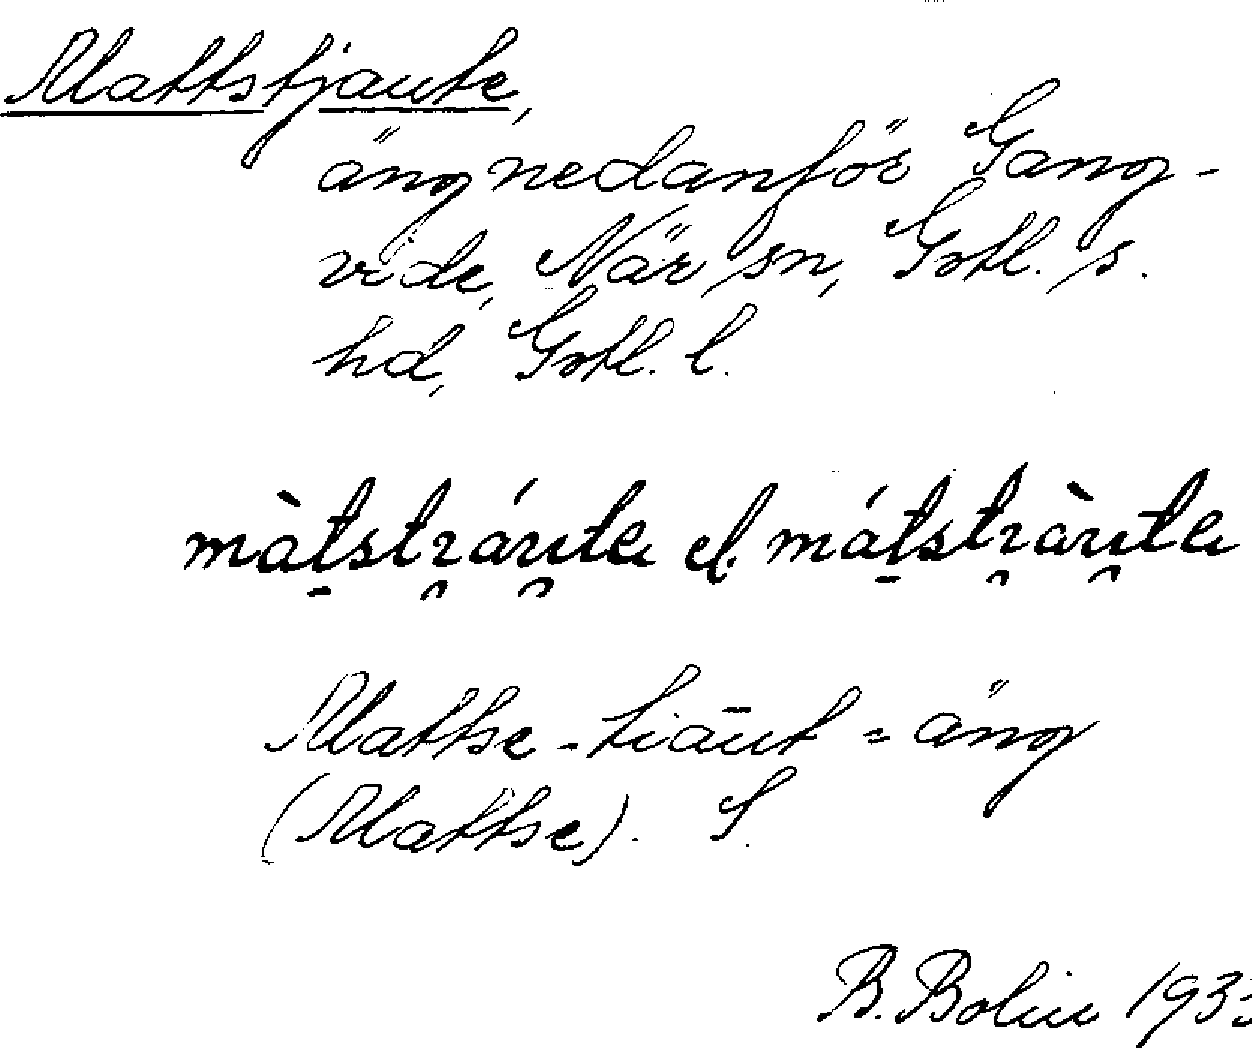 Mattstjaute,
äng nedanför Gang-
vide, När sn, Gotl. s.
hd, Gotl. l.
màtstɿáute el. mátstɿàute
Mattse-tiāut = äng
(Mattse). S.
B. Bolin 1933